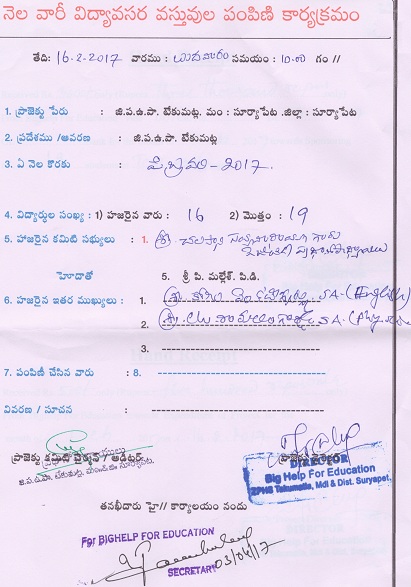 నెల వారీ విద్యావసర వస్తువుల పంపిణి కార్యక్రమం
తేది: 16-2-2017 వారము : బుదవారం సమయం : 10.00 గం //
1. ప్రాజెక్టు పేరు : జి.ప.ఉ.పా. టేకుమట్ల. మం : సూర్యాపేట .జిల్లా : సూర్యాపేట
2. ప్రదేశము /ఆవరణ : జి.ప.ఉ.పా. టేకుమట్ల
3. ఏ నెల కొరకు : పిబ్రవరి-2017.
4. విద్యార్థుల సంఖ్య : 1) హజరైన వారు : 16 2) మొత్తం : 19
5. హాజరైన కమిటి సభ్యులు : 1. శ్రీ
హెదాతో 5. శ్రీ పి. మల్లేశ్. పి.డి.
6. హజరైన ఇతర ముఖ్యులు : 1. శ్రీ S.A-(English)
2. శ్రీ S.A-
3.
7. పంపిణీ చేసిన వారు : 8.
వివరణ / సూచన :
ప్రాజెక్టు కమిటి చైర్మన్ / అడిటర్ ప్రాజెక్టు
జి.ప.ఉ.పా. టేకుమట్ల, మండలం సూర్యాపేట.
DIRECTOR
Big Help For Education
ZPHS Tekumatla, Mdl & Dist. Suryapet.
తనఖీదారు హై// కార్యాలయం నందు
For BIGHELP FOR EDUCATION
SECRETARY 03/04/17